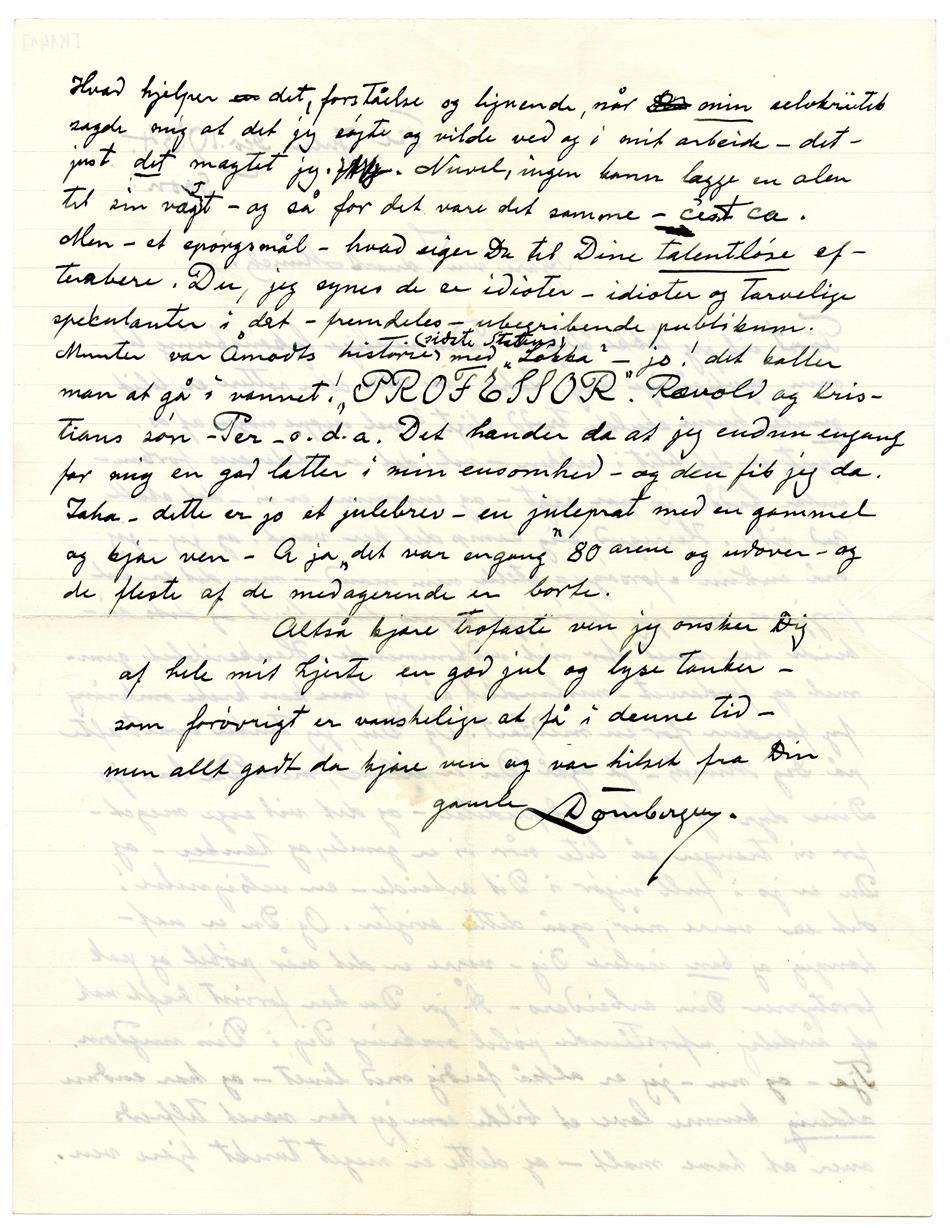 Hvad hjelper det, forståelse og lignende, når min selvkritik
sagde mig at det jeg søgte og vilde ved og i mit arbeide – det –
just det magtet jeg. . Nuvel, ingen kann lægge en alen
til sin vægt – og så får det være det samme – c'est ca.
Men – et spörgsmål – hvad siger Du til Dine talentlöse ef-
terabere. Du, jeg synes de er idioter – idioter og tarvelige
spekulanter i det – fremdeles – ubegribende publikum.
(sidste Statens)
Munter var Åmodts historie med "Lokka" – jo! det kaller
man at gå i vannet! "PROFESSOR". Revold og Kris-
tians søn – Per – o.d.a. Det hænder da at jeg endnu engang
får mig en god latter i min ensomhed – og den fik jeg da.
Jaha – dette er jo et julebrev – en juleprat med en gammel
og kjær ven – A ja "det var engang" 80 årene og udover – og
de fleste af de medagerende er borte.
Altså kjære trofaste ven jeg önsker Dig
af hele mit hjerte en god jul og lyse tanker –
som forövrigt er vanskelige at få i denne tid –
men allt godt da kjære ven og vær hilset fra Din
gamle Dörnberger.